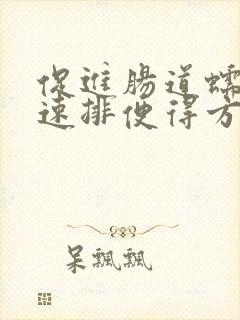 促進腸道蠕
速排便得方
呆飄飄